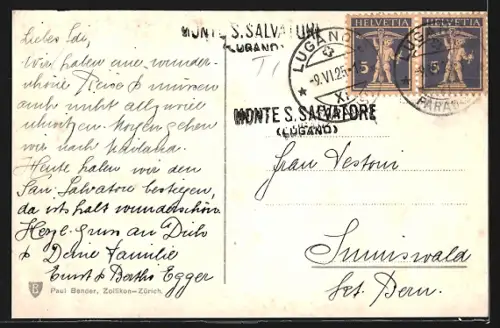 Liebes Idi,
Wir haben eine wunder-
schöne Reise & müssen
auch nicht allzuviel
schwitzen. Morgen gehen
wir nach Mailand.
Heute haben wir den
San Salvatore bestiegen,
da ists halt wunderschön.
Herzl. Gruss an Dich
& Deine Familie
Ernst & Egger
Paul Bender, Zollikon-Zürich
MONTE S. SALVATORE
(LUGANO)
LUGANO
-9.VI.25
MONTE S. SALVATORE
(LUGANO)
HELVETIA HELVETIA
5 5
LUGANO
PARADISO
Frau Vestoni
Sumiswald
Kt. Bern.